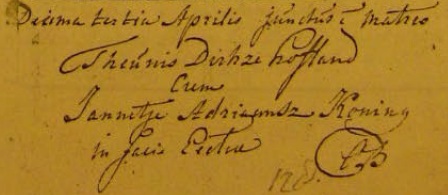 Decima tertia Aprilis junctus ē matreo
Theunis Dirkze hofland
Cum
Jannetje Adriaansz Koning
in facie Eccliæ